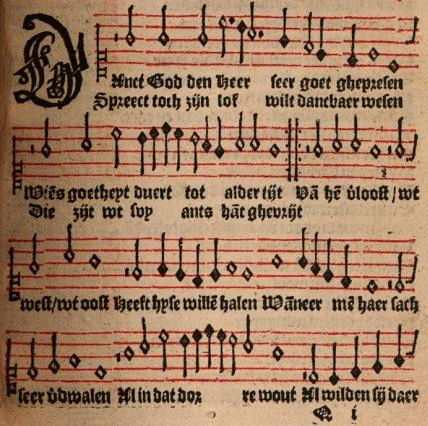 DAnct God den Heer seer goet ghepresen
Spreect toch zijn lof wilt danckbaer wesen
Wiẽs goetheyt duert tot alder tijt Vã hẽ v̊loost / wt
Die zijt wt svy ants hãt ghevrijt
west / wt oost Heeft hyse willẽ halen Wãneer mẽ haer sach
seer v̊dwalen Al in dat dor re wout Al wilden sij daer
Q i